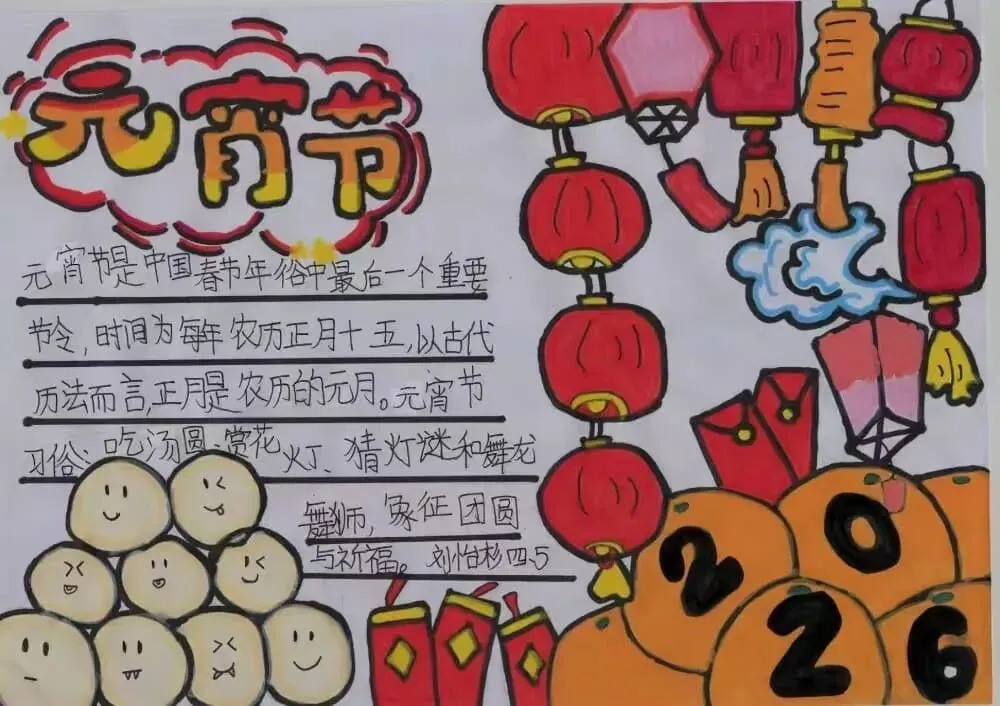 元宵节
元宵节是中国春节年俗中最后一个重要
节令，时间为每年农历正月十五，以古代
历法而言，正月是农历的元月。元宵节
习俗：吃汤圆、赏花灯、猜灯谜和舞龙
舞狮，象征团圆
与祈福。刘怡杉四、5
2026